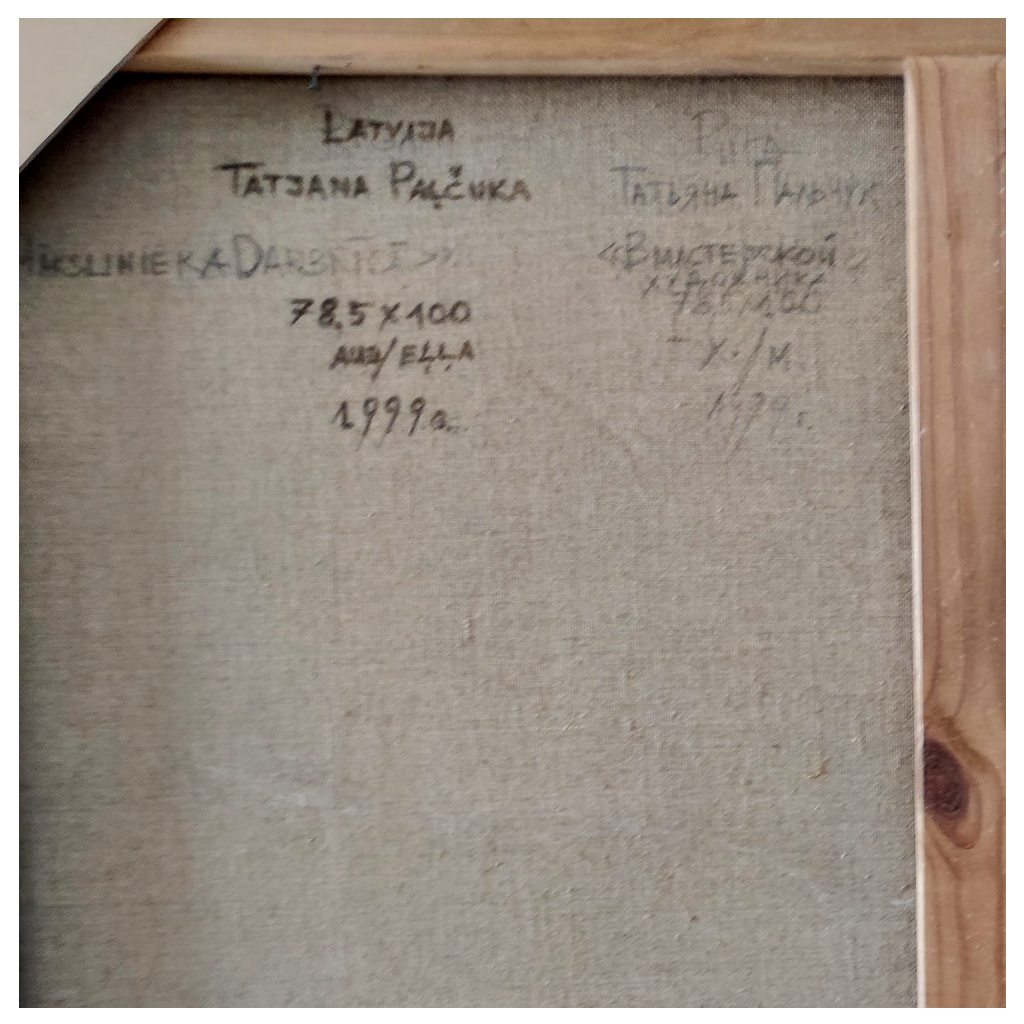 LATVIJA
TATJANA PAĻČUKA
MĀKSLINIEKA DARBNĪCĀ»
78,5 x 100
AUD/EĻĻA
1999.g.
РИГА
ТАТЬЯНА ПАЛЬЧУК
«В МАСТЕРСКОЙ
ХУДОЖНИКА»
78,5 x 100
Х./М.
1999 г.